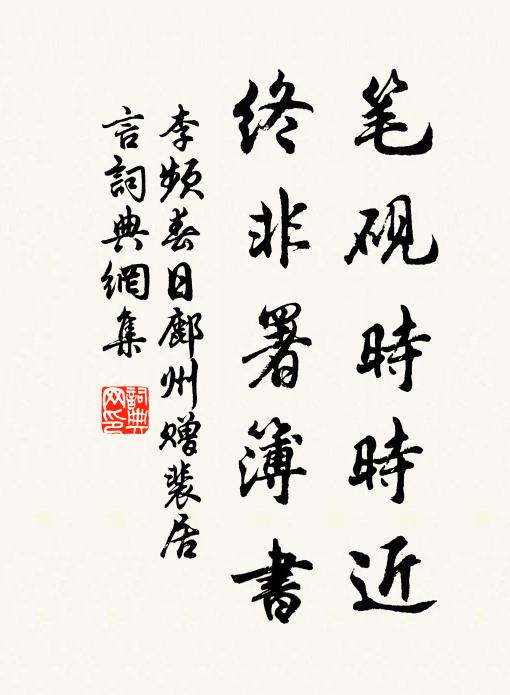 笔砚時時近
终非署簿書
李频春日鄜州赠裴居
言詞典網集
詞典
网印